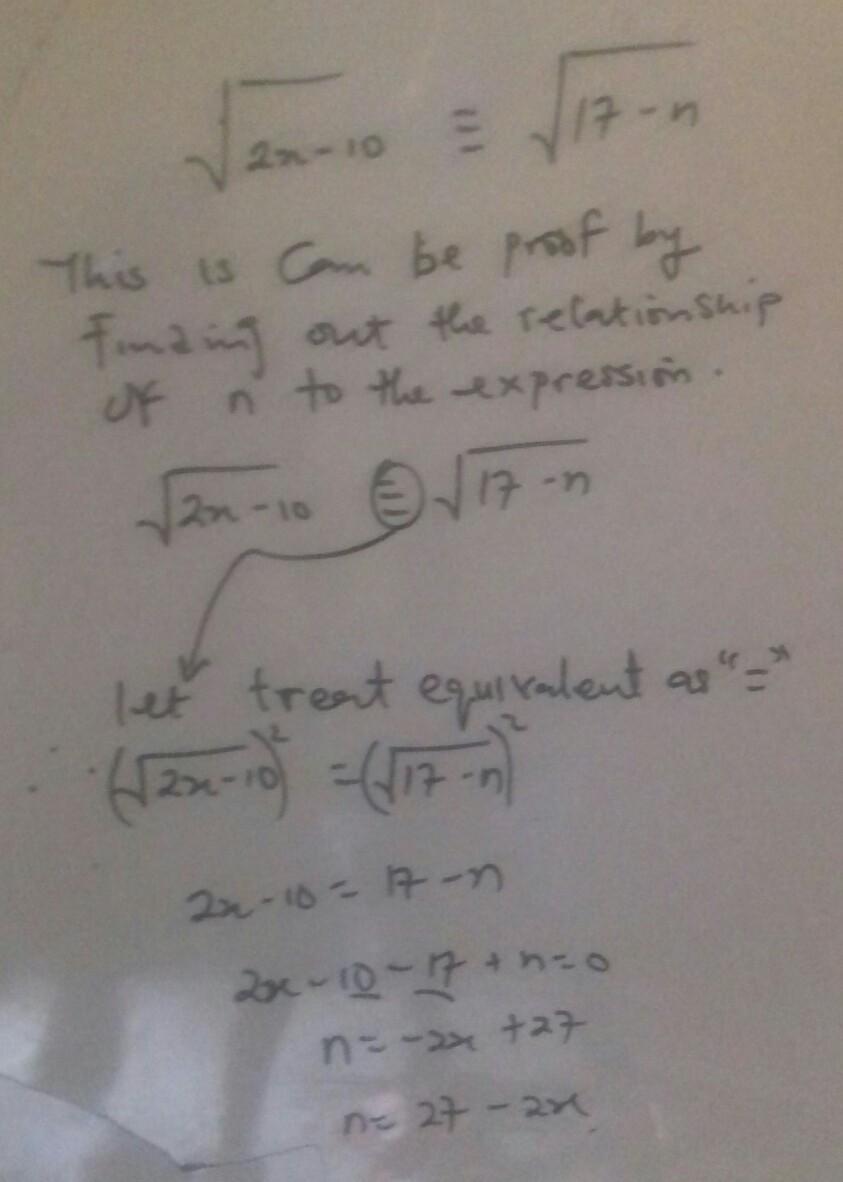 √2x-10 ≡ √17-n
This is Can be proof by
finding out the relationship
of n to the expression.
√2x-10 ≡ √17-n
let treat equivalent as "="
∴ (√2x-10)² = (√17-n)²
2x-10 = 17-n
2x-10-17+n=0
n=-2x+27
n=27-2x.